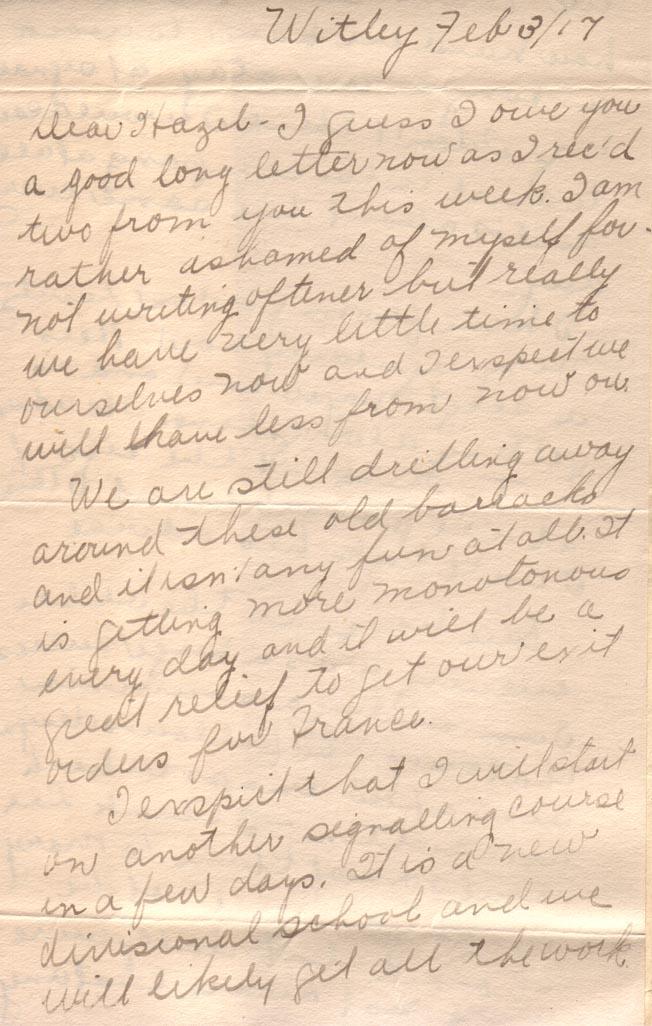 Witley Feb 3/17
Dear Hazel - I guess I owe you
a good long letter now as I rec'd
two from you this week. I am
rather ashamed of myself for
not writing oftener but really
we have very little time to
ourselves now and I exspect we
will have less from now on.
We are still drilling away
around these old barracks
and it isn't any fun at all. It
is getting more monotonous
every day and it will be a
great relief to get our exit
orders for France.
I exspect that I will start
on another signalling course
in a few days. It is a new
divisional school and we
will likely get all the work.